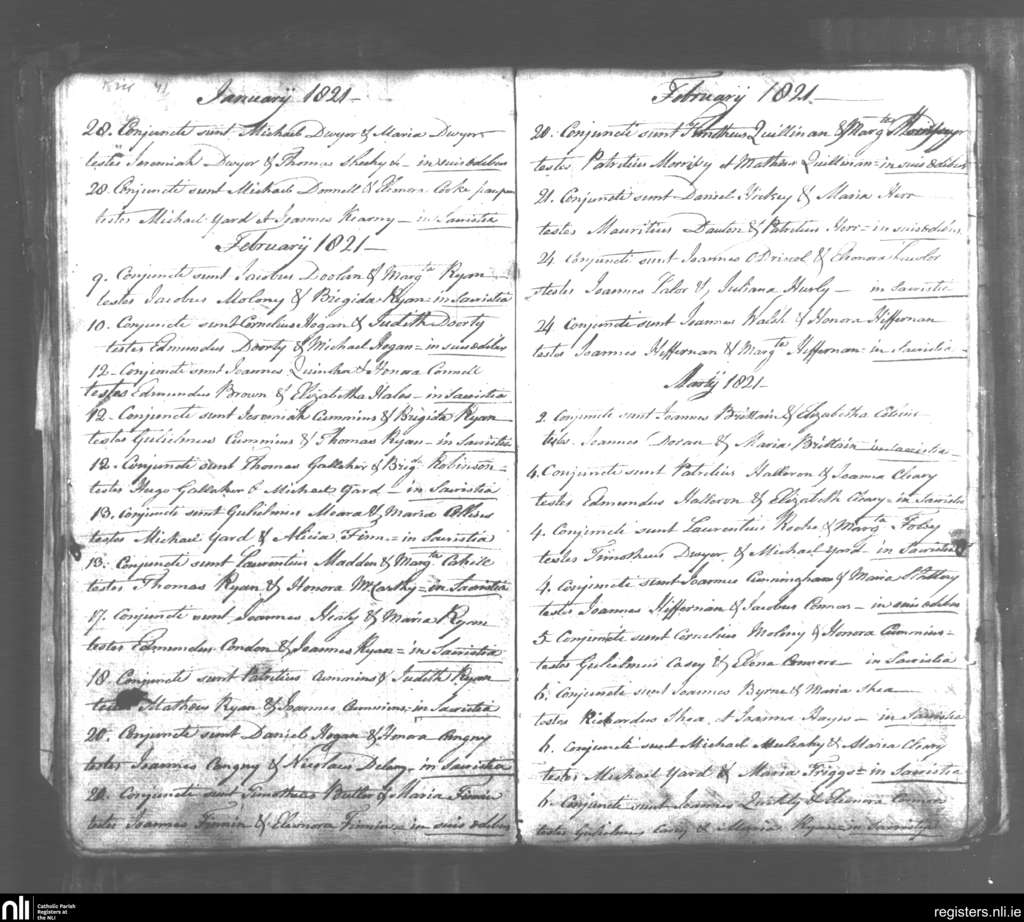 Januarij 1821
28. Conjuncti sunt Michael Dwyer & Maria Dwyer
testes Jeremiah Dwyer & Thomas Sheehy & in suis ædibus
28. Conjuncti sunt Michael Donnell & Honora Cooke
testes Michael Yard et Joannes Kearny in Sacristia
Februarij 1821
9. Conjuncti sunt Jacobus Doolan & Margta Ryan
testes Jacobus Molony & Brigida Ryan = in Sacristia
10. Conjuncti sunt Cornelius Hogan & Judith Doorty
testes Edmundus Doorty & Michael Hogan = in suis ædibus
12. Conjuncti sunt Joannes & Honora Connell
testes Edmundus Brown & Elizabetha Hales - in Sacristia
12. Conjuncti sunt Jeremiah Cummins & Brigida Ryan
testes Gulielmus Cummins & Thomas Ryan - in Sacristia
12. Conjuncti sunt Thomas Gallaher & Brigd Robinson =
testes Hugo Gallaher & Michael Yard - in Sacristia
13. Conjuncti sunt Gulielmus Meara & Maria
testes Michael Yard & Alicia Finn = in Sacristia
13. Conjuncti sunt Laurentius Madden & Margta Cahill
testes Thomas Ryan & Honora McCarthy = in Sacristia
17. Conjuncti sunt Joannes Healy & Maria Ryan
testes Edmundus Condon & Joannes Ryan = in Sacristia
18. Conjuncti sunt Patritius Cummins & Judith Ryan
testes Matheus Ryan & Joannes Cummins = in Sacristia
20. Conjuncti sunt Daniel Hogan & Honora Congny
testes Joannes Congny & Nicolaus Delany - in Sacristia
20. Conjuncti sunt Timotheus Butler & Maria Finnin
testes Joannes Finnin & Eleonora Finnin - in suis ædibus
Februarij 1821
20. Conjuncti sunt Quillinan & Margta
testes Patritius Morrissy et Matheus Quillinan = in suis ædibus
21. Conjuncti sunt Daniel Hickey & Maria Herr
testes Mauritius Daulon & Patritius Herr = in suis ædibus
24 Conjuncti sunt Joannes O'Driscol & Eleonora Lawlor
testes Joannes Lalor & Juliana Hurly - in Sacristia
24 Conjuncti sunt Joannes Walsh & Honora Hiffernan
testes Joannes Heffernan & Margta Hiffernan = in Sacristia
Martij 1821
2. Conjuncti sunt Joannes Brittain & Elizabetha
testes Joannes Doran & Maria Brittain in Sacristia
4. Conjuncti sunt Patritius Halloron & Joanna Cleary
testes Edmundus Halloron & Elizabeth Cleary - in Sacristia
4. Conjuncti sunt Laurentius Roche & Margta Foley
testes Timotheus Dwyer & Michael Yard - in Sacristia
4. Conjuncti sunt Joannes Cunningham & Maria Slattery
testes Joannes Hiffernan & Jacobus Connor - in suis ædibus
5. Conjuncti sunt Cornelius Molony & Honora Cummins =
testes Gulielmus Casey & Elena Connors - in Sacristia
6. Conjuncti sunt Joannes Byrne & Maria Shea
testes Richardus Shea et Joanna Hayes - in Sacristia
6. Conjuncti sunt Michael Mulcahy & Maria Cleary
testes Michael Yard & Maria Friggs = in Sacristia
6. Conjuncti sunt Joannes Quirkly & Eleonora Connor
testes Gulielmus Casey & Maria Ryan = in Sacristia
nli
Catholic Parish
Registers at
the NLI
registers.nli.ie